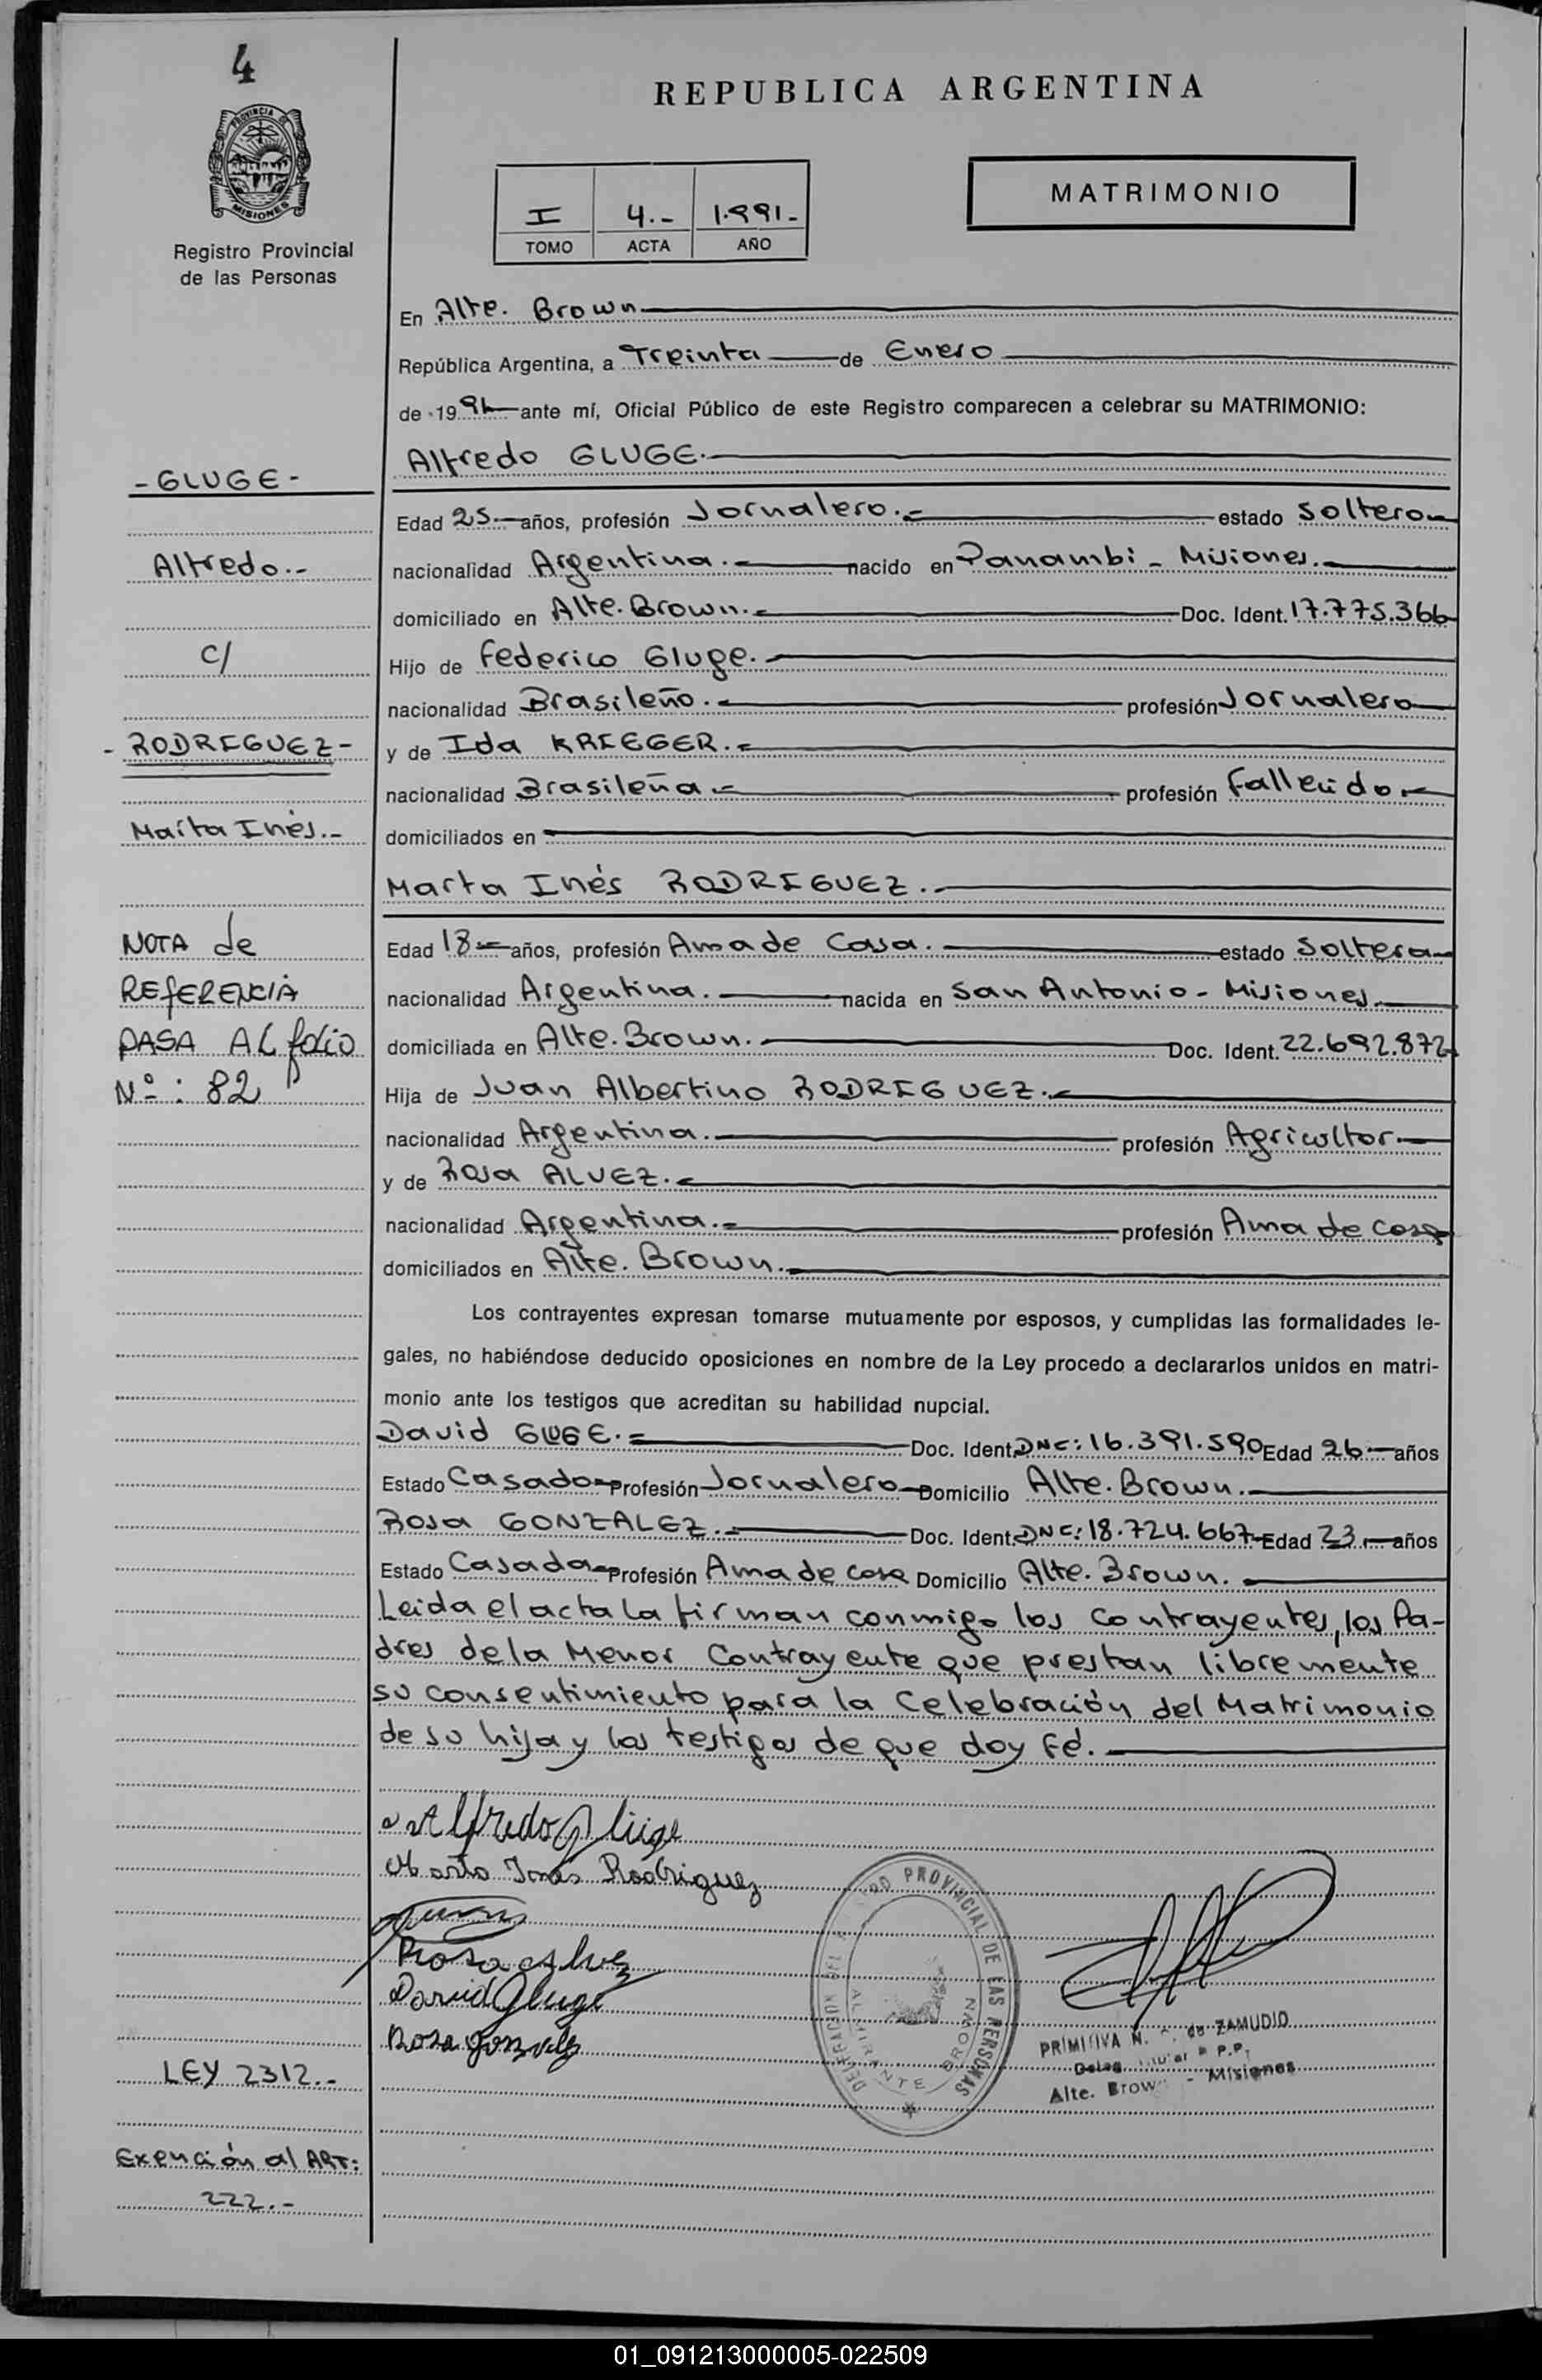 4
REPUBLICA ARGENTINA
PROVINCIA DE
MISIONES
Registro Provincial
de las Personas
I 4.- 1.991-
TOMO ACTA AÑO
MATRIMONIO
En Alte. Brown
República Argentina, a Treinta de Enero
de 1991 ante mí, Oficial Público de este Registro comparecen a celebrar su MATRIMONIO:
Alfredo GLUGE.
- GLUGE -
Edad 25 años, profesión Jornalero.- estado Soltero
Alfredo.-
nacionalidad Argentina.- nacido en Panambi - Misiones.-
domiciliado en Alte. Brown.- Doc. Ident. 17.775.366
c/
Hijo de Federico Gluge.-
nacionalidad Brasileño.- profesión Jornalero
- RODRIGUEZ -
y de Ida KRIEGER.-
nacionalidad Brasileña.- profesión Fallecido.-
Marta Inés.-
domiciliados en
Marta Inés RODRIGUEZ.-
NOTA de
REFERENCIA
PASA AL folio
Nº: 82
Edad 18 años, profesión Ama de Casa. estado Soltera
nacionalidad Argentina. nacida en San Antonio - Misiones.
domiciliada en Alte. Brown. Doc. Ident. 22.692.872
Hija de Juan Albertino RODRIGUEZ.-
nacionalidad Argentina. profesión Agricultor
y de Rosa ALVEZ.-
nacionalidad Argentina.- profesión Ama de casa
domiciliados en Alte. Brown.
Los contrayentes expresan tomarse mutuamente por esposos, y cumplidas las formalidades le-
gales, no habiéndose deducido oposiciones en nombre de la Ley procedo a declararlos unidos en matri-
monio ante los testigos que acreditan su habilidad nupcial.
David GLUGE.- Doc. Ident. DNI: 16.391.590 Edad 26 años
Estado Casado Profesión Jornalero Domicilio Alte. Brown.
Rosa GONZALEZ.- Doc. Ident. DNI: 18.724.667 Edad 23 años
Estado Casada Profesión Ama de casa Domicilio Alte. Brown.
Leida el acta la firman conmigo los contrayentes, los Pa-
dres de la Menor Contrayente que prestan libremente
su consentimiento para la Celebración del Matrimonio
de su hija y los testigos de que doy Fé.
Alfredo Gluge
Marta Inés Rodriguez
Rosa alvez
David Gluge
Rosa gonzalez
PROVINCIAL DE LAS PERSONAS
ALMIRANTE BROWN
PRIMITIVA N. de ZAMUDIO
Alte. Brown - Misiones
LEY 2312.-
Exención al ART:
222.-
01_091213000005-022509